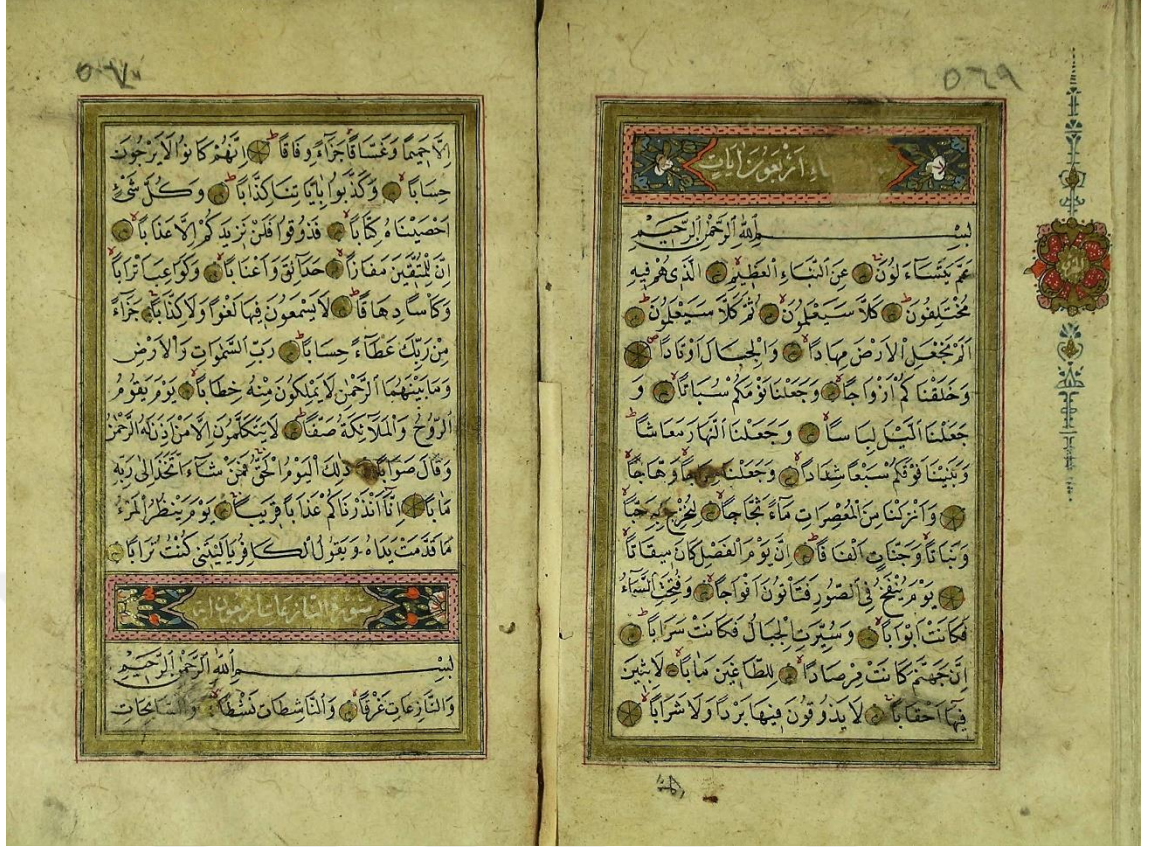 ٥٦٩
سورة النباء اربعون ايات
بسم الله الرحمن الرحيم
عَمَّ يَتَسَاءَلُونَ عَنِ النَّبَاءِ الْعَظِيمِ الَّذِى هُمْ فِيهِ
مُخْتَلِفُونَ كَلَّا سَيَعْلَمُونَ ثُمَّ كَلَّا سَيَعْلَمُونَ
اَلَمْ نَجْعَلِ الْاَرْضَ مِهَادًا وَالْجِبَالَ اَوْتَادًا
وَخَلَقْنَاكُمْ اَزْوَاجًا وَجَعَلْنَا نَوْمَكُمْ سُبَاتًا وَ
جَعَلْنَا الَّيْلَ لِبَاسًا وَجَعَلْنَا النَّهَارَ مَعَاشًا
وَبَنَيْنَا فَوْقَكُمْ سَبْعًا شِدَادًا وَجَعَلْنَا سِرَاجًا وَهَّاجًا
وَاَنْزَلْنَا مِنَ الْمُعْصِرَاتِ مَاءً ثَجَّاجًا لِنُخْرِجَ بِهِ حَبًّا
وَنَبَاتًا وَجَنَّاتٍ اَلْفَافًا اِنَّ يَوْمَ الْفَصْلِ كَانَ مِيقَاتًا
يَوْمَ يُنْفَخُ فِى الصُّورِ فَتَاْتُونَ اَفْوَاجًا وَفُتِحَتِ السَّمَاءُ
فَكَانَتْ اَبْوَابًا وَسُيِّرَتِ الْجِبَالُ فَكَانَتْ سَرَابًا
اِنَّ جَهَنَّمَ كَانَتْ مِرْصَادًا لِلطَّاغِينَ مَاٰبًا لَابِثِينَ
فِيهَا اَحْقَابًا لَا يَذُوقُونَ فِيهَا بَرْدًا وَلَا شَرَابًا
اِلَّا حَمِيمًا وَغَسَّاقًا جَزَاءً وِفَاقًا اِنَّهُمْ كَانُوا لَا يَرْجُونَ
حِسَابًا وَكَذَّبُوا بِاٰيَاتِنَا كِذَّابًا وَكُلَّ شَىْءٍ
اَحْصَيْنَاهُ كِتَابًا فَذُوقُوا فَلَنْ نَزِيدَكُمْ اِلَّا عَذَابًا
اِنَّ لِلْمُتَّقِينَ مَفَازًا حَدَائِقَ وَاَعْنَابًا وَكَوَاعِبَ اَتْرَابًا
وَكَاْسًا دِهَاقًا لَا يَسْمَعُونَ فِيهَا لَغْوًا وَلَا كِذَّابًا جَزَاءً
مِنْ رَبِّكَ عَطَاءً حِسَابًا رَبِّ السَّمٰوَاتِ وَالْاَرْضِ
وَمَا بَيْنَهُمَا الرَّحْمٰنِ لَا يَمْلِكُونَ مِنْهُ خِطَابًا يَوْمَ يَقُومُ
الرُّوحُ وَالْمَلَائِكَةُ صَفًّا لَا يَتَكَلَّمُونَ اِلَّا مَنْ اَذِنَ لَهُ الرَّحْمٰنُ
وَقَالَ صَوَابًا ذٰلِكَ الْيَوْمُ الْحَقُّ فَمَنْ شَاءَ اتَّخَذَ اِلٰى رَبِّهِ
مَاٰبًا اِنَّا اَنْذَرْنَاكُمْ عَذَابًا قَرِيبًا يَوْمَ يَنْظُرُ الْمَرْءُ
مَا قَدَّمَتْ يَدَاهُ وَيَقُولُ الْكَافِرُ يَالَيْتَنِى كُنْتُ تُرَابًا
سورة والنازعات اربعون اية
بسم الله الرحمن الرحيم
وَالنَّازِعَاتِ غَرْقًا وَالنَّاشِطَاتِ نَشْطًا وَالسَّابِحَاتِ